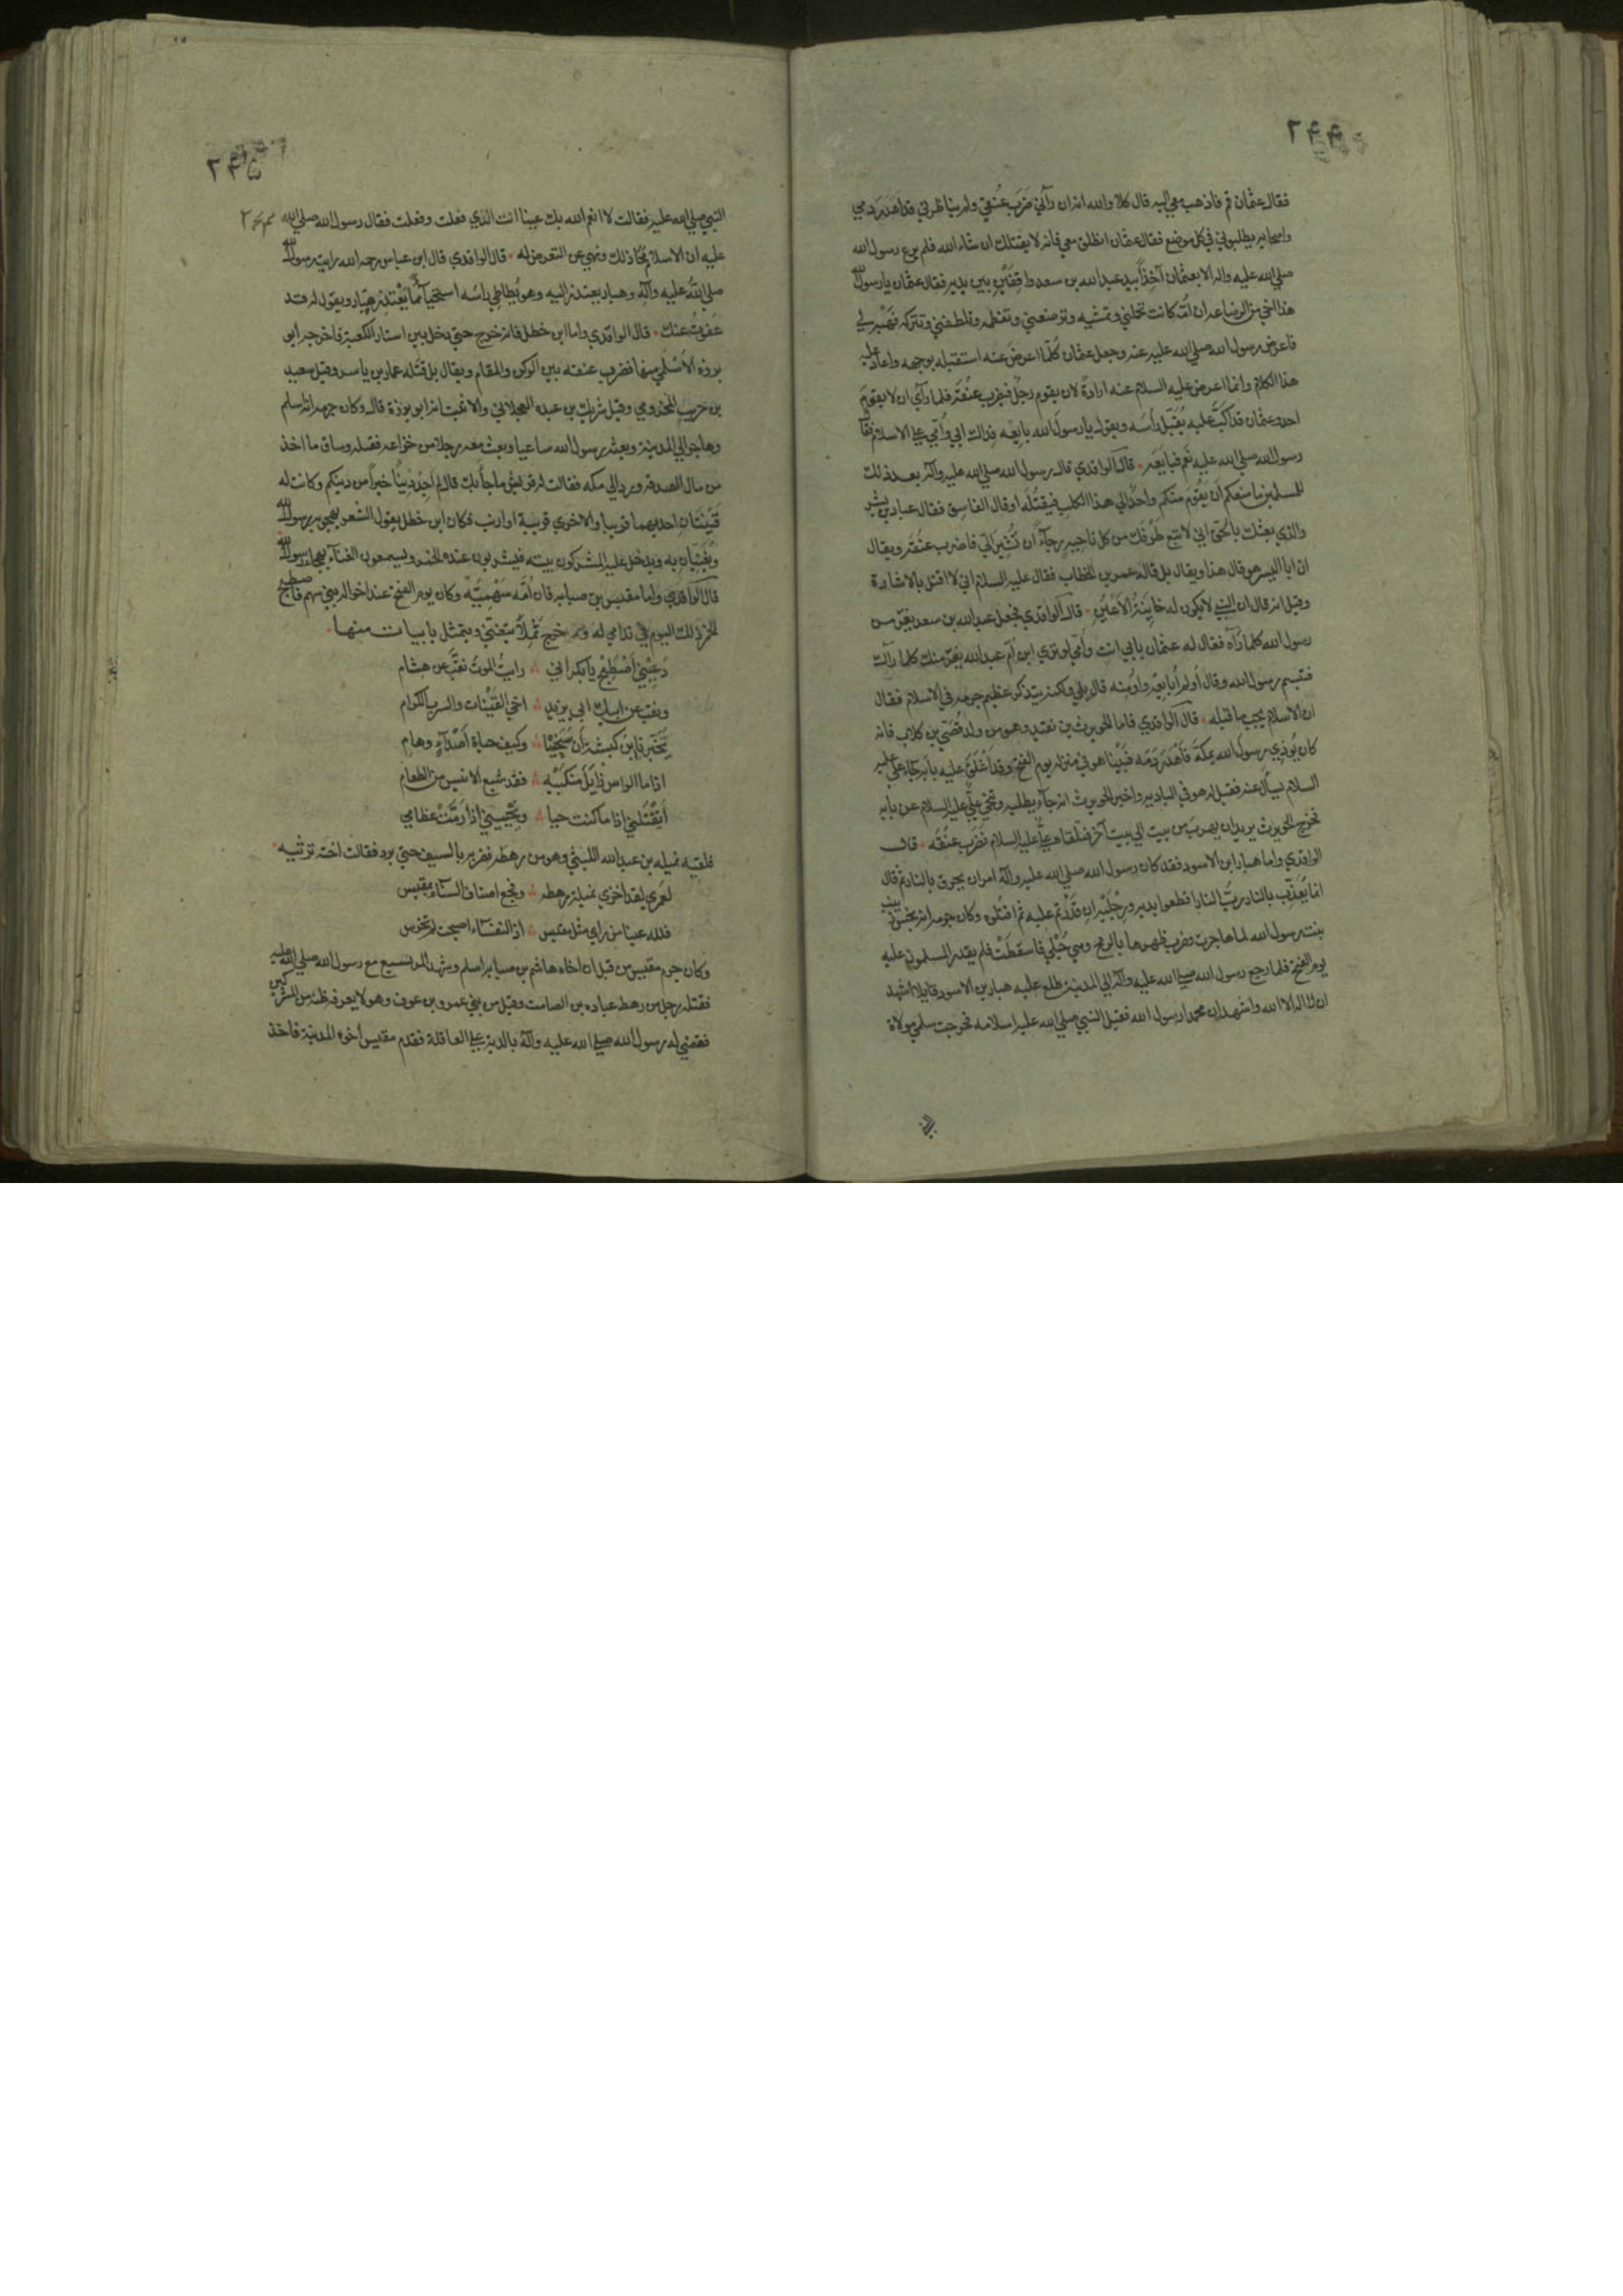 ٢٤٤
فقال عثمان قم فاذهب معي اليه قال كلا والله انه ان رآني ضَرَبَ عُنُقي ولم يناظرني قد اَهْدَرَ دمي
واصحابه يطلبوني في كل موضع فقال عثمان انطلق معي فانه لا يقتلك ان شاء الله فلم يرع رسول الله
صلي الله عليه واله الا بعثمان آخِذًا بيد عبد الله بن سعد واقِفَيْنِ بين يديه فقال عثمان يا رسول الله
هذا اخي من الرضاعه ان اُمَّه كانت تحملني وتمشيه وترضعني وتفطمه وتلطفني وتتركه فَهَبْه لي
فاعرض رسول الله صلي الله عليه عنه وجعل عثمان كُلّما اعرض عنه استقبله بوجهه واعاد عليه
هذا الكلام وانما اعرض عليه السلام عنه ارادةً لان يقوم رجلٌ فيَضْرِبَ عنُقَه فلما رَاَي ان لا يقومَ
احد وعثمان قد اَكَبَّ عليه يُقَبِّل رأسَه ويقول يا رسولَ الله بايعه فداك ابي وأُمّي علي الاسلام فقال
رسول الله صلي الله عليه نَعَم فبايَعَه • قال الواقدي قال رسول الله صلي الله عليه وآله بعد ذلك
للمسلمين ما منعكم اَن يَقُوم منكم واحدٌ الي هذا الكلب فيقتُلَه او قال الفاسق فقال عباد بن بشر
والذي بعثك بالحق اني لاتتبع طَرْفَك من كل ناحيه رجآءً ان تُشِيرَ اليّ فاضرب عنُقَه ويقال
ان ابا اليسر هو قال هذا ويقال بل قاله عمر بن الخطاب فقال عليه السلام اني لا اقتل بالاشارة
وقيل انه قال ان النبي لا يكون له خاينَةُ الاَعْيُنِ • قال الواقدي فجعل عبد الله بن سعد يفرّ من
رسول الله كلما رَآه فقال له عثمان بابي انت واُمّي لو تري ابن اُم عبد الله يفرّ منك كلما رآك
فتبسم رسول الله وقال اَولم اُبايعه واُومنه قال بلي ولكنه يتذكر عظيم جرمه في الاسلام فقال
ان الاسلام يجب ما قبله • قال الواقدي فاما الحويرث بن نقيد وهو من ولد قُصَيّ بن كلاب فانه
كان يُوذي رسول الله بمكة فَاَهْدَرَ دَمَه فبَيْنا هو في منزله يوم الفتح وقد اَغْلَق عليه بابَه جاء علي عليه
السلام يسأل عنه فقيل له هو في الباديه واخبر الحويرث انه جآء يطلبه وتنحي عليّ عليه السلام عن بابه
فخرج الحويرث يريد ان يهرب من بيت الي بيت آخر فتلقاه عليٌّ عليه السلام فضَرَب عنُقَه • قال
الواقدي واما هبار ابن الاسود فقد كان رسول الله صلي الله عليه وآله امر ان يحرق بالنار ثم قال
انما يُعَذِّب بالنار رَبُّ النار اقطعوا يديه ورِجْلَيْه اِن قَدَرْتم عليه ثم اقتُلوه وكان جرمه انه نخس زينب
بنت رسول الله لما هاجرت وضرب ظهرها بالرمح وهي حُبْلي فاسقطَتْ فلم يقدر المسلمون عليه
يوم الفتح فلما رجع رسول الله صلي الله عليه وآله الي المدينة طلع عليه هبار بن الاسود قايلا اشهد
ان لا اله الا الله واشهد ان محمدا رسول الله فقبل النبي صلي الله عليه اسلامه فخرجت سلمي مولاة
٢٤٥
النبي صلي الله عليه فقالت لا انعم الله بك عينا انت الذي فعلت وفعلت فقال رسول الله صلي الله
عليه ان الاسلام مَحَا ذلك ونهي عن التعرض له • قال الواقدي قال ابن عباس رحمه الله رايت رسول الله
صلي الله عليه وآله وهبار يعتذر اليه وهو يُطاطِي رأسَه استحياً مما يَعْتذر هبّار ويقول له قد
عَفوتُ عنك • قال الواقدي واما ابن خطل فانه خرج حتي دخل بين استار الكعبة فاخرجه ابو
برزه الاَسْلَمي منها فضرب عنقه بين الركن والمقام ويقال بل قتَله عمار بن ياسر وقيل سعيد
بن حريث المخزومي وقيل شريك بن عبده العجلاني والاثبت انه ابو برزة قال وكان جرمه انه اسلم
وهاجر الي المدينة وبعثه رسول الله ساعيا وبعث معه رجلا من خزاعه فقتله وساق ما اخذ
من مال الصدقه ورجع الي مكه فقالت له قريش ما جاَ بك قال لم اَجِد دِيْنًا خيراً من دينكم وكانت له
قَيْنَتَانِ احديهما قرينا والاخري قريبة او ارنب فكان ابن خطل يقول الشعر يهجو به رسول الله
ويُغَنِّيانِ به ويدخل عليه المشركون بيته فيشربون عنده الخمر ويسمعون الغنآء بهجاء رسول الله
قال الواقدي واما مقيس بن صبابه فان اُمّه سَهْميَّه وكان يوم الفتح عند اخواله بني سهم فاصطبح
الخمر ذلك اليوم في ندامي له وخرج ثَمِلًا يتغنّي ويتمثل بابيات منها •
دَعِيْنِي اَصْطَبِحْ يا بَكْر اني ∴ رايتُ الموتَ نقّبَ عن هشام
ونقب عن ابيك ابي يزيد ∴ اخي القَيْنات والشرب الكرام
يُخَبِّرنا ابنُ كبشة اَن سَنَحْيَا ∴ وكيف حياة اَصْدَآءٍ وهامِ
اذا ما الراس زايَل مَنكبَيْه ∴ فقد شبع الانيس من الطعام
اَيَقْتُلني اذا ما كنت حيا ∴ ويُحْيِيني اذا رَمَّتْ عظامي
فلقيه نميله بن عبد الله الليثي وهو من رهطه فضربه بالسيف حتي برد فقالت اخته ترثيه •
لعَمري لقد اَخزي نميلة رهطه ∴ وفجع اصناف الستآء بمقيس
فلله عينا من راي مثل مقيس ∴ اذا النفسآء اصبحت لم تخرس
وكان جرم مقيس من قبل ان اخاه هاشم بن صبابه اسلم وشهد المريسيع مع رسول الله صلي الله عليه
فقتله رجل من رهط عباده بن الصامت وقيل من بني عمرو بن عوف وهو لا يعرفه فظنه من المشركين
فقضي له رسول الله صلي الله عليه وآله بالدية علي العاقلة فقدم مقيس اخوه المدينة فاخذ